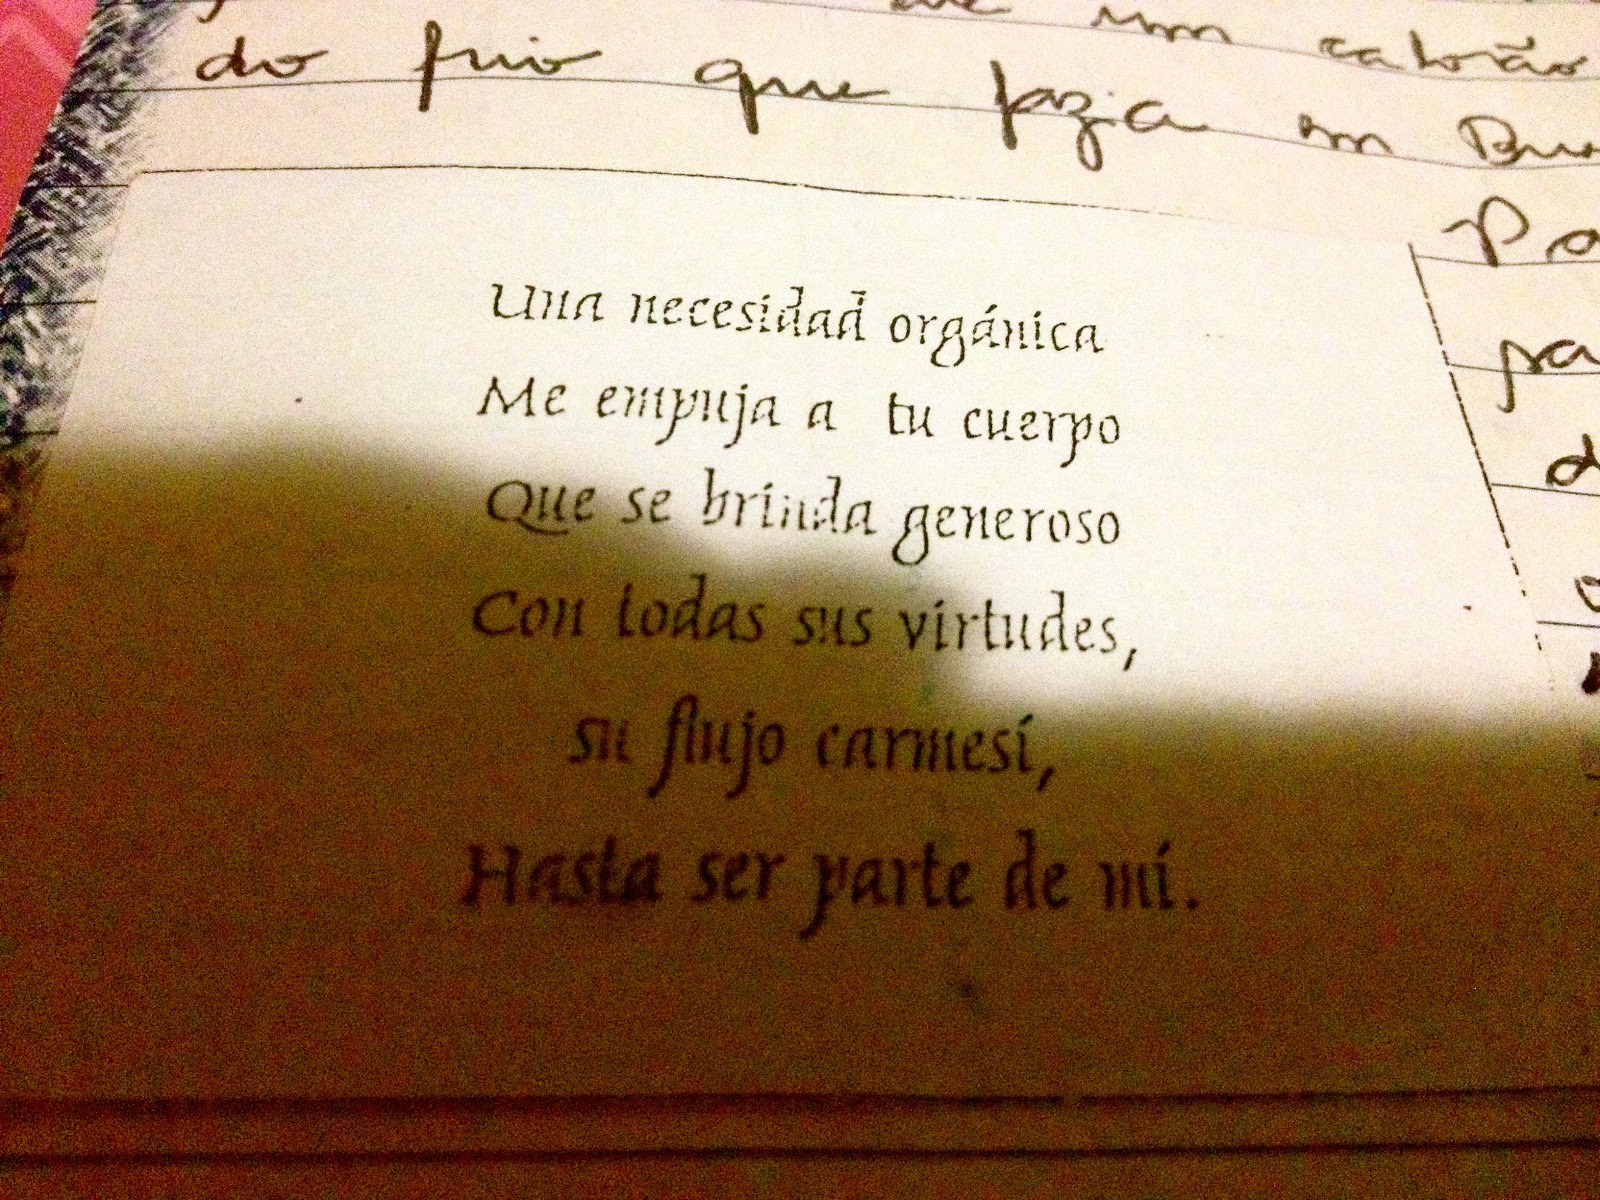 um calorão
do frio que fazia em Bue
Una necesidad orgánica
Me empuja a tu cuerpo
Que se brinda generoso
Con todas sus virtudes,
su flujo carmesí,
Hasta ser parte de mí.